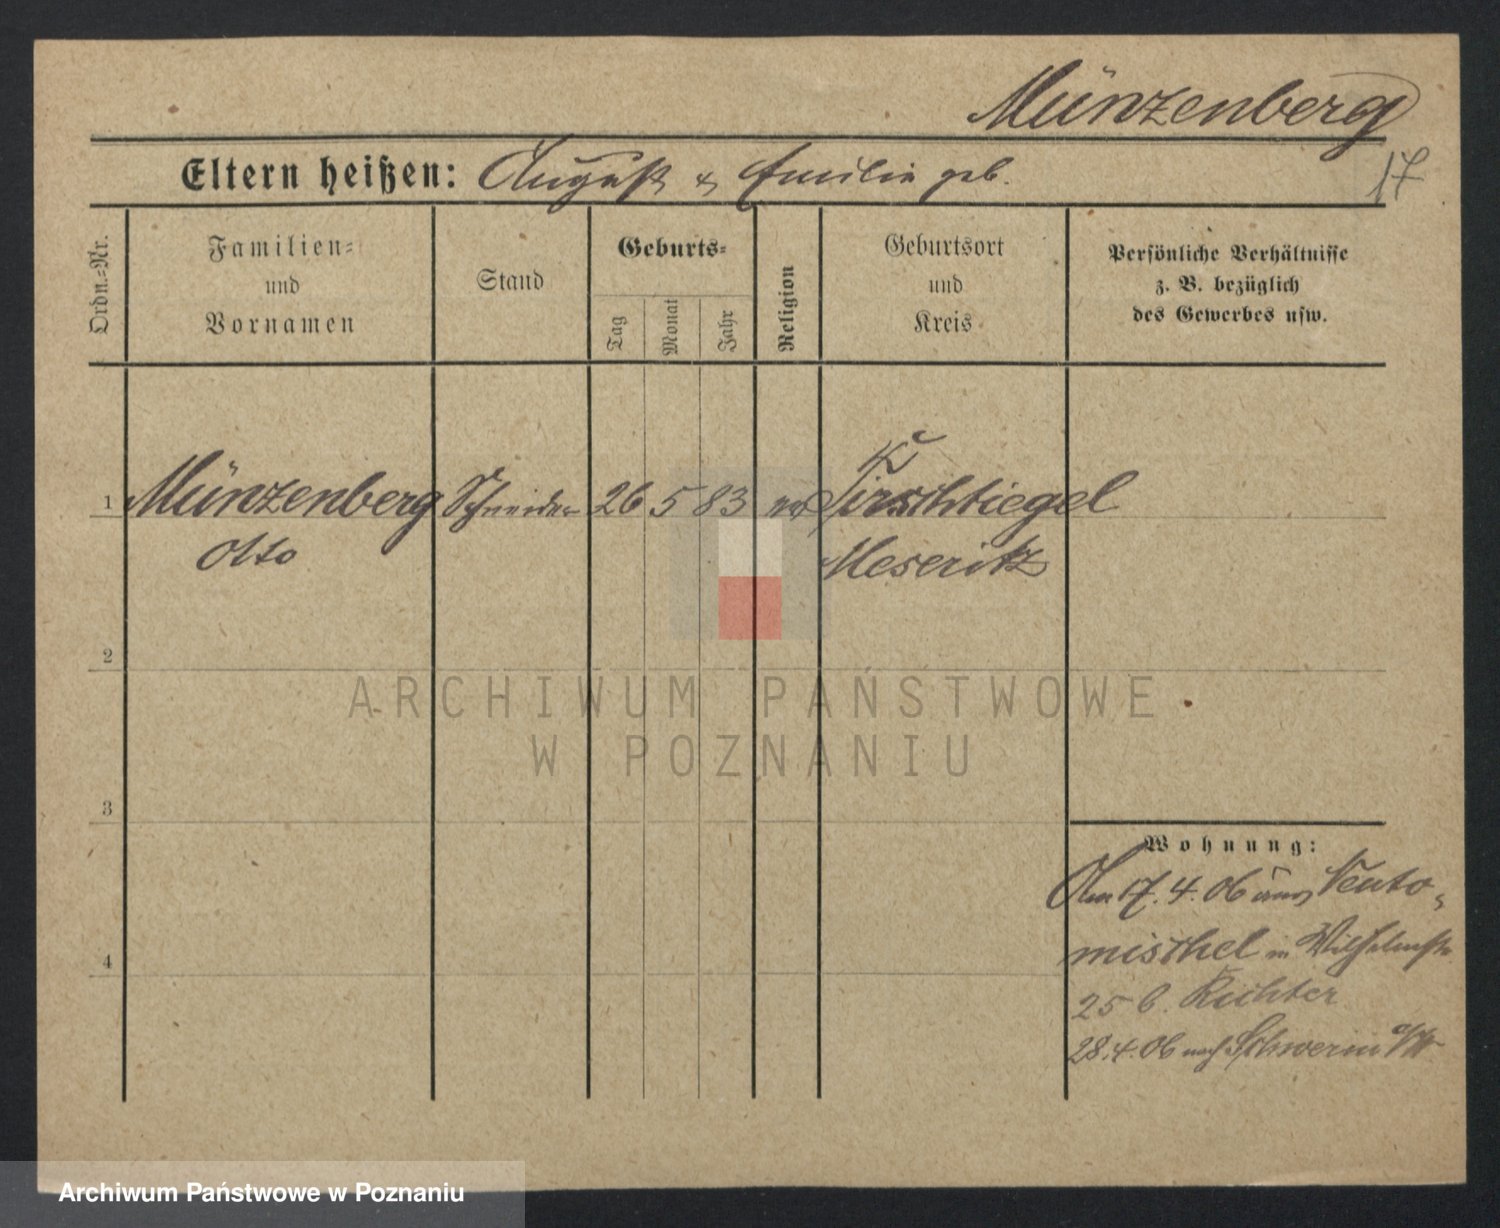 Münzenberg
17
Eltern heißen: August & Emilie geb.
Ordn.-Nr.
Familien-
und
Vornamen
Stand
Geburts-
Tag
Monat
Jahr
Religion
Geburtsort
und
Kreis
Persönliche Verhältnisse
z. B. bezüglich
des Gewerbes usw.
1 Münzenberg Schneider 26 5 83 Tirschtiegel
Otto Meseritz
2
3
4
ARCHIWUM PAŃSTWOWE
W POZNANIU
Wohnung:
Am 17.4.06 aus Neuto-
mischel in Wilhelmstr.
25 b. Richter
28.4.06 nach Schwerin a/W
Archiwum Państwowe w Poznaniu